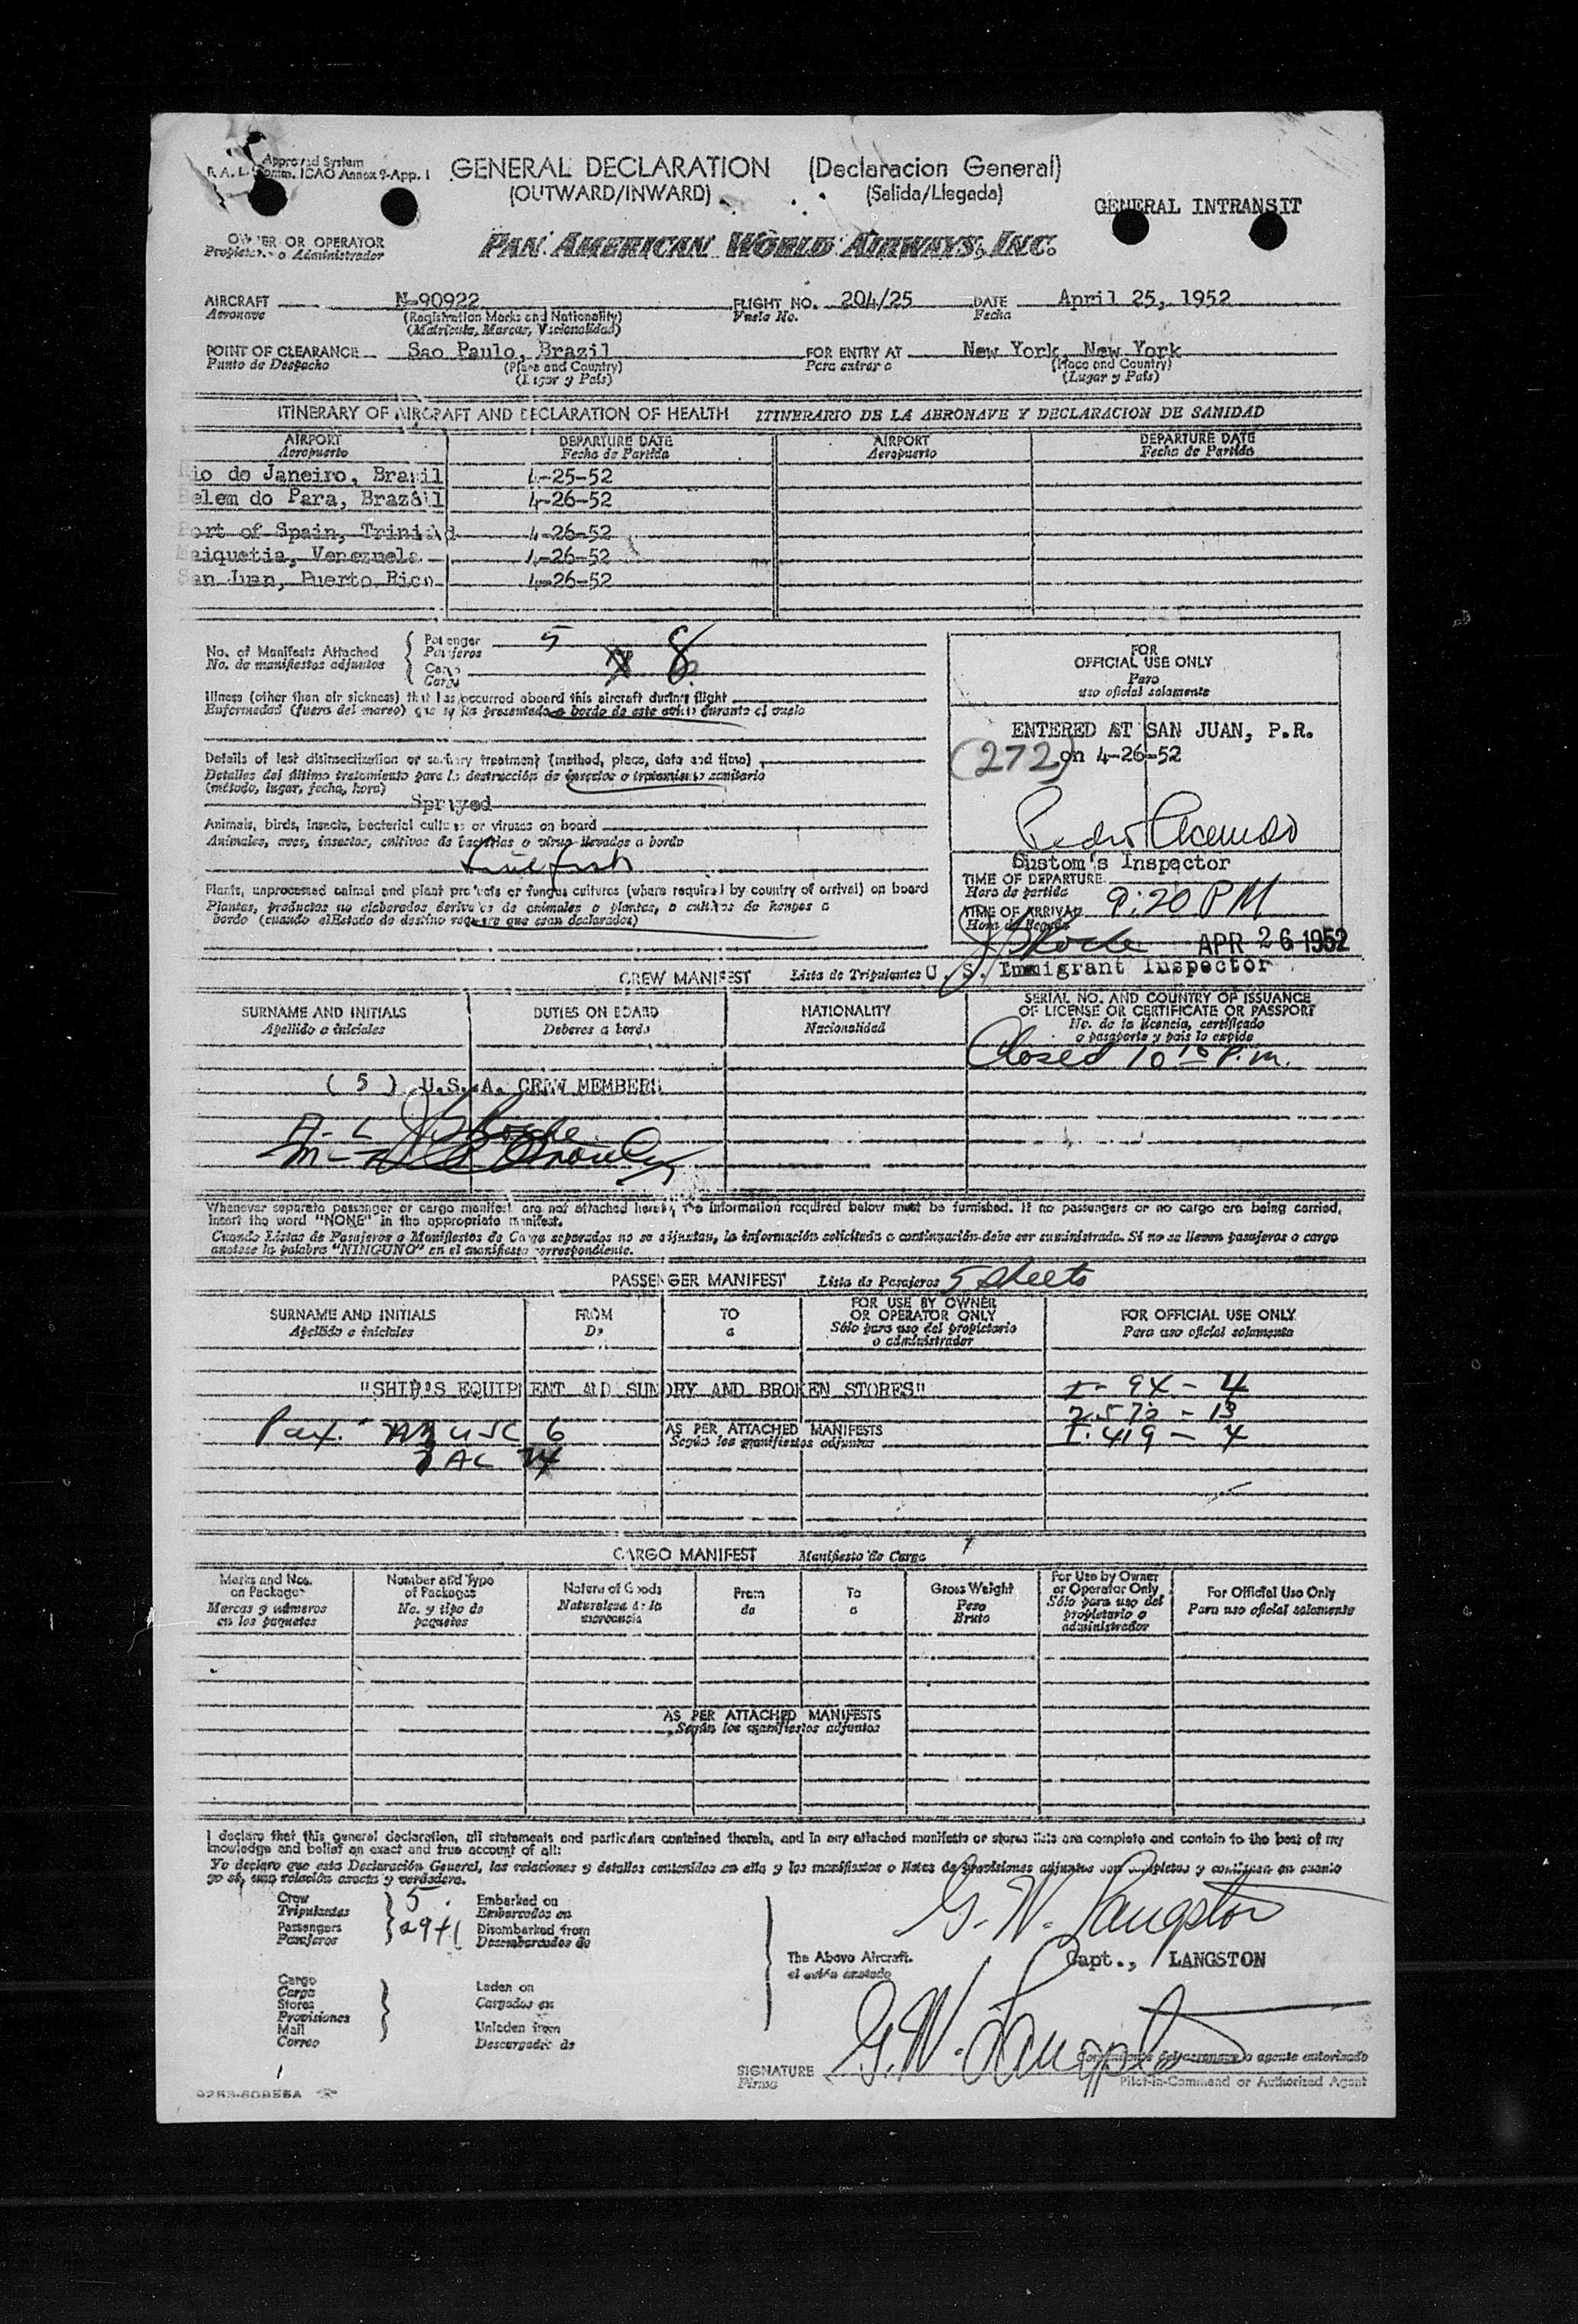 Approved System
Comm. ICAO Annex 9-App. 1
GENERAL DECLARATION (Declaracion General)
(OUTWARD/INWARD) (Salida/Llegada)
GENERAL INTRANSIT
OWNER OR OPERATOR
Propietario o Administrador
PAN AMERICAN WORLD AIRWAYS, INC.
AIRCRAFT N-90922 FLIGHT NO. 204/25 DATE April 25, 1952
Aeronave (Registration Marks and Nationality) Vuelo No. Fecha
(Matricula, Marcas, Nacionalidad)
POINT OF CLEARANCE Sao Paulo, Brazil FOR ENTRY AT New York, New York
Punto de Despacho (Place and Country) Para entrar a (Place and Country)
(Lugar y País) (Lugar y País)
ITINERARY OF AIRCRAFT AND DECLARATION OF HEALTH ITINERARIO DE LA AERONAVE Y DECLARACION DE SANIDAD
AIRPORT DEPARTURE DATE AIRPORT DEPARTURE DATE
Aeropuerto Fecha de Partida Aeropuerto Fecha de Partida
Rio de Janeiro, Brasil 4-25-52
Belem do Para, Brazil 4-26-52
Port of Spain, Trinidad 4-26-52
Maiquetia, Venezuela 4-26-52
San Juan, Puerto Rico 4-26-52
No. of Manifests Attached
No. de manifiestos adjuntos
Passenger
Pasajeros 5
Cargo
Carga 8
FOR
OFFICIAL USE ONLY
Para
uso oficial solamente
Illness (other than air sickness) that has occurred aboard this aircraft during flight
Enfermedad (fuera del mareo) que se ha presentado a bordo de este avión durante el vuelo
ENTERED AT SAN JUAN, P.R.
(272) on 4-26-52
Details of last disinsectization or sanitary treatment (method, place, date and time)
Detalles del último tratamiento para la destrucción de insectos o tratamiento sanitario
(método, lugar, fecha, hora)
Sprayed
Animals, birds, insects, bacterial cultures or viruses on board
Animales, aves, insectos, cultivos de bacterias o virus llevados a bordo
Live fish
Pedro Acevedo
Custom's Inspector
Plants, unprocessed animal and plant products or fungus cultures (where required by country of arrival) on board
Plantas, productos no elaborados derivados de animales o plantas, o cultivos de hongos a
bordo (cuando el Estado de destino requiere que sean declarados)
TIME OF DEPARTURE
Hora de partida
TIME OF ARRIVAL 9:20 PM
Hora de llegada
APR 26 1952
U. S. Immigrant Inspector
CREW MANIFEST Lista de Tripulantes
SURNAME AND INITIALS DUTIES ON BOARD NATIONALITY SERIAL NO. AND COUNTRY OF ISSUANCE
OF LICENSE OR CERTIFICATE OR PASSPORT
Apellido e iniciales Deberes a bordo Nacionalidad No. de la licencia, certificado
o pasaporte y país lo expide
Closed 10 15 P.m.
( 5 ) U.S.A. CREW MEMBERS
Whenever separate passenger or cargo manifest are not attached hereto, the information required below must be furnished. If no passengers or no cargo are being carried,
insert the word "NONE" in the appropriate manifest.
Cuando Listas de Pasajeros o Manifiestos de Carga separados no se adjuntan, la información solicitada a continuación debe ser suministrada. Si no se llevan pasajeros o cargo
anotese la palabra "NINGUNO" en el manifiesto correspondiente.
PASSENGER MANIFEST Lista de Pasajeros 5 sheets
SURNAME AND INITIALS FROM TO FOR USE BY OWNER
OR OPERATOR ONLY FOR OFFICIAL USE ONLY
Apellido e iniciales De a Sólo para uso del propietario
o administrador Para uso oficial solamente
"SHIP'S EQUIPMENT AND SUNDRY AND BROKEN STORES" I- 94 - 4
257a - 13
Pax. USC 6 AS PER ATTACHED MANIFESTS I. 419 - 4
Según los manifiestos adjuntos
AC 24
CARGO MANIFEST Manifiesto de Carga
Marks and Nos.
on Packages
Marcas y números
en los paquetes
Number and Type
of Packages
No. y tipo de
paquetes
Nature of Goods
Naturaleza de la
mercancía
From
de
To
a
Gross Weight
Peso
Bruto
For Use by Owner
or Operator Only
Sólo para uso del
propietario o
administrador
For Official Use Only
Para uso oficial solamente
AS PER ATTACHED MANIFESTS
Según los manifiestos adjuntos
I declare that this general declaration, all statements and particulars contained therein, and in any attached manifests or stores lists are complete and contain to the best of my
knowledge and belief an exact and true account of all:
Yo declaro que esta Declaración General, las relaciones y detalles contenidos en ella y los manifiestos o listas de provisiones adjuntos son completos y contienen en cuanto
yo sé, una relación exacta y verdadera.
Crew
Tripulantes 5
Passengers
Pasajeros 29+1
Embarked on
Embarcados en
Disembarked from
Desembarcados de
G. W. Langston
The Above Aircraft.
el avión anotado
Capt., LANGSTON
Cargo
Carga
Stores
Provisiones
Mail
Correo
Laden on
Cargados en
Unladen from
Descargados de
SIGNATURE G.W. Langston
Firma
Comandante de aeronave o agente autorizado
Pilot-in-Command or Authorized Agent